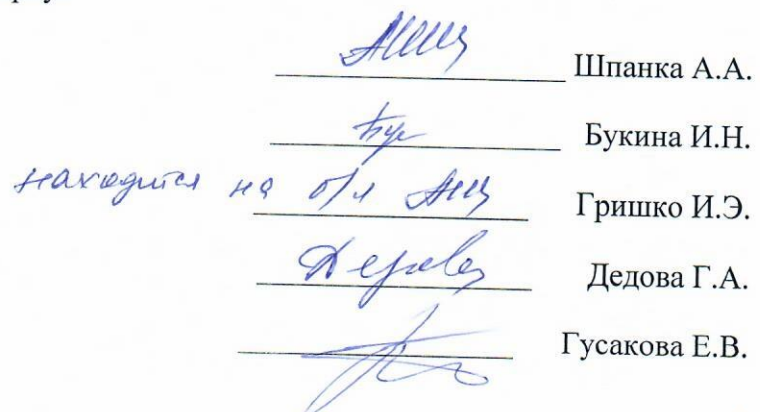 Шпанка А.А.
Букина И.Н.
находится на б/л Гришко И.Э.
Дедова Г.А.
Гусакова Е.В.